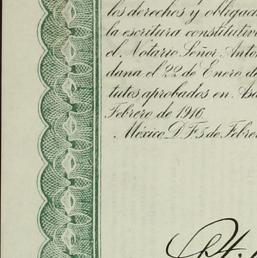 los derechos y obligaci
la escritura constitutiv
el Notario Señor Anto
dana el 22 de Enero de
tutos aprobados en Asa
Febrero de 1916.
México D.F. 5 de Febre